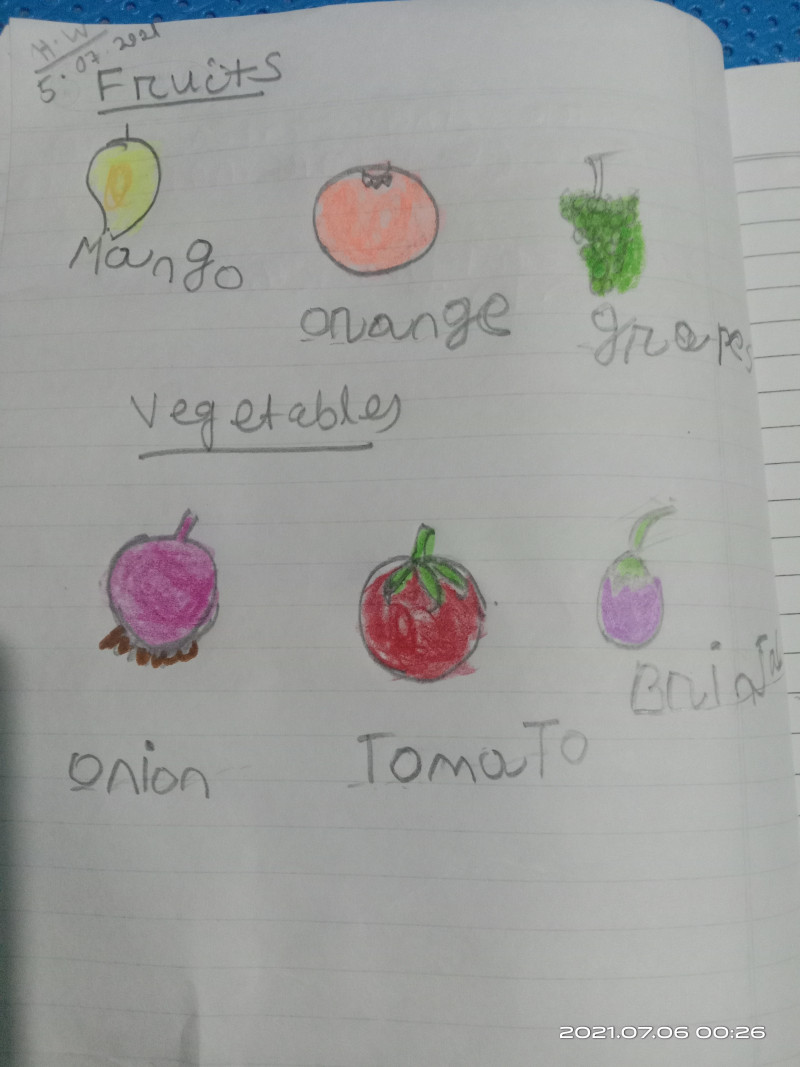 H.W
5.07.2021
Fruits
Mango
orange
grapes
Vegetables
onion
Tomato
2021.07.06 00:26